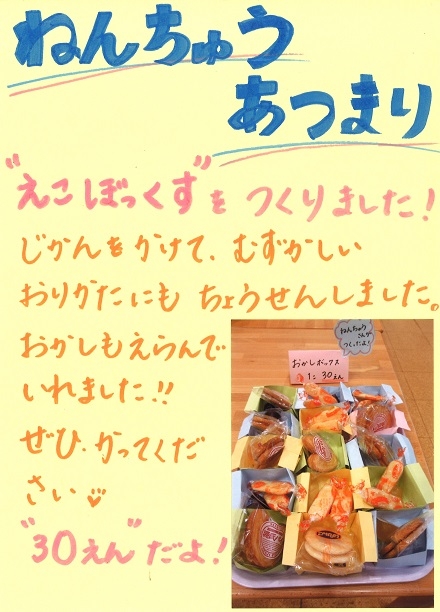 ねんちゅう
あつまり
"えこぼっくす"をつくりました!
じかんをかけて、むずかしい
おりかたにもちょうせんしました。
おかしもえらんで
いれました!!
ぜひ、かってくだ
さい♡
"30えん"だよ!
ねんちゅう
さんが
つくったよ!
おかしボックス
1こ 30えん